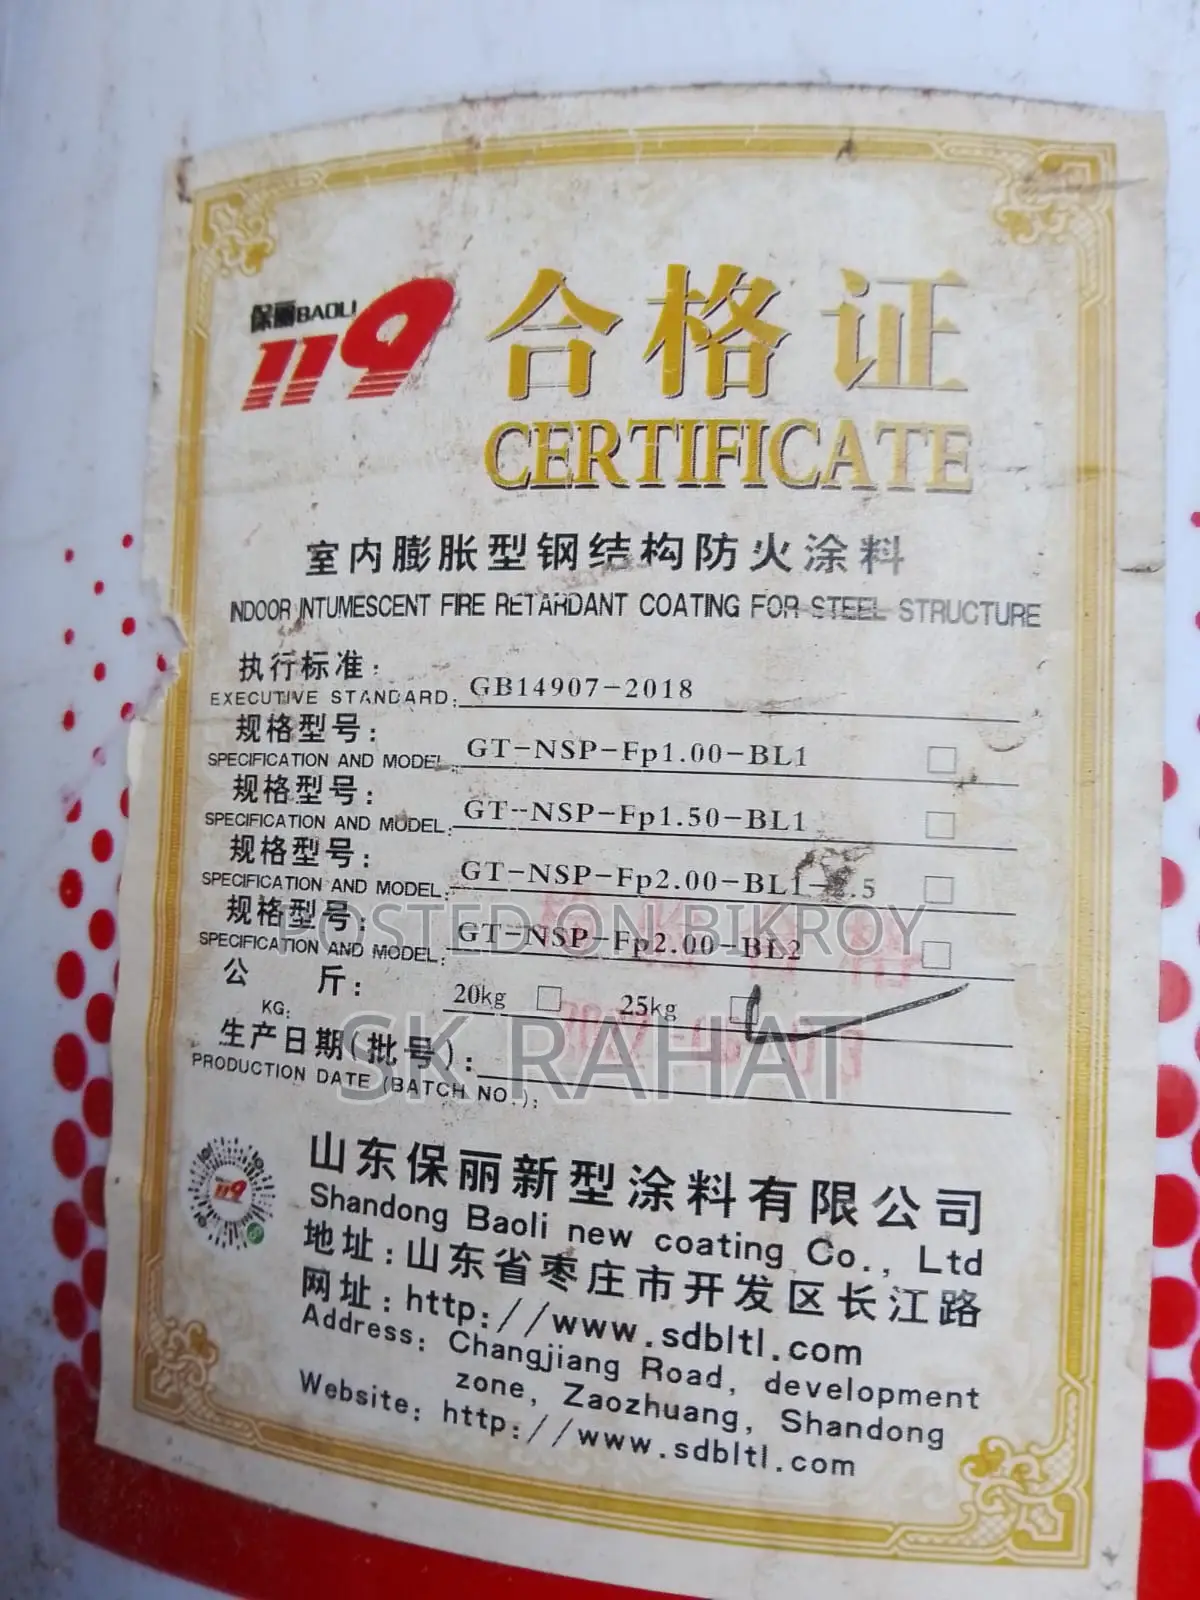 保丽BAOLI
119
合格证
CERTIFICATE
室内膨胀型钢结构防火涂料
INDOOR INTUMESCENT FIRE RETARDANT COATING FOR STEEL STRUCTURE
执行标准:
EXECUTIVE STANDARD: GB14907-2018
规格型号:
SPECIFICATION AND MODEL: GT-NSP-Fp1.00-BL1
规格型号:
SPECIFICATION AND MODEL: GT-NSP-Fp1.50-BL1
规格型号:
SPECIFICATION AND MODEL: GT-NSP-Fp2.00-BL1
规格型号:
SPECIFICATION AND MODEL: GT-NSP-Fp2.00-BL2
POSTED ON BIKROY
公 斤:
KG: 20kg 25kg
SK RAHAT
生产日期(批号):
PRODUCTION DATE (BATCH NO.):
119
山东保丽新型涂料有限公司
Shandong Baoli new coating Co., Ltd
地址:山东省枣庄市开发区长江路
网址:http://www.sdbltl.com
Address: Changjiang Road, development
zone, Zaozhuang, Shandong
Website: http://www.sdbltl.com